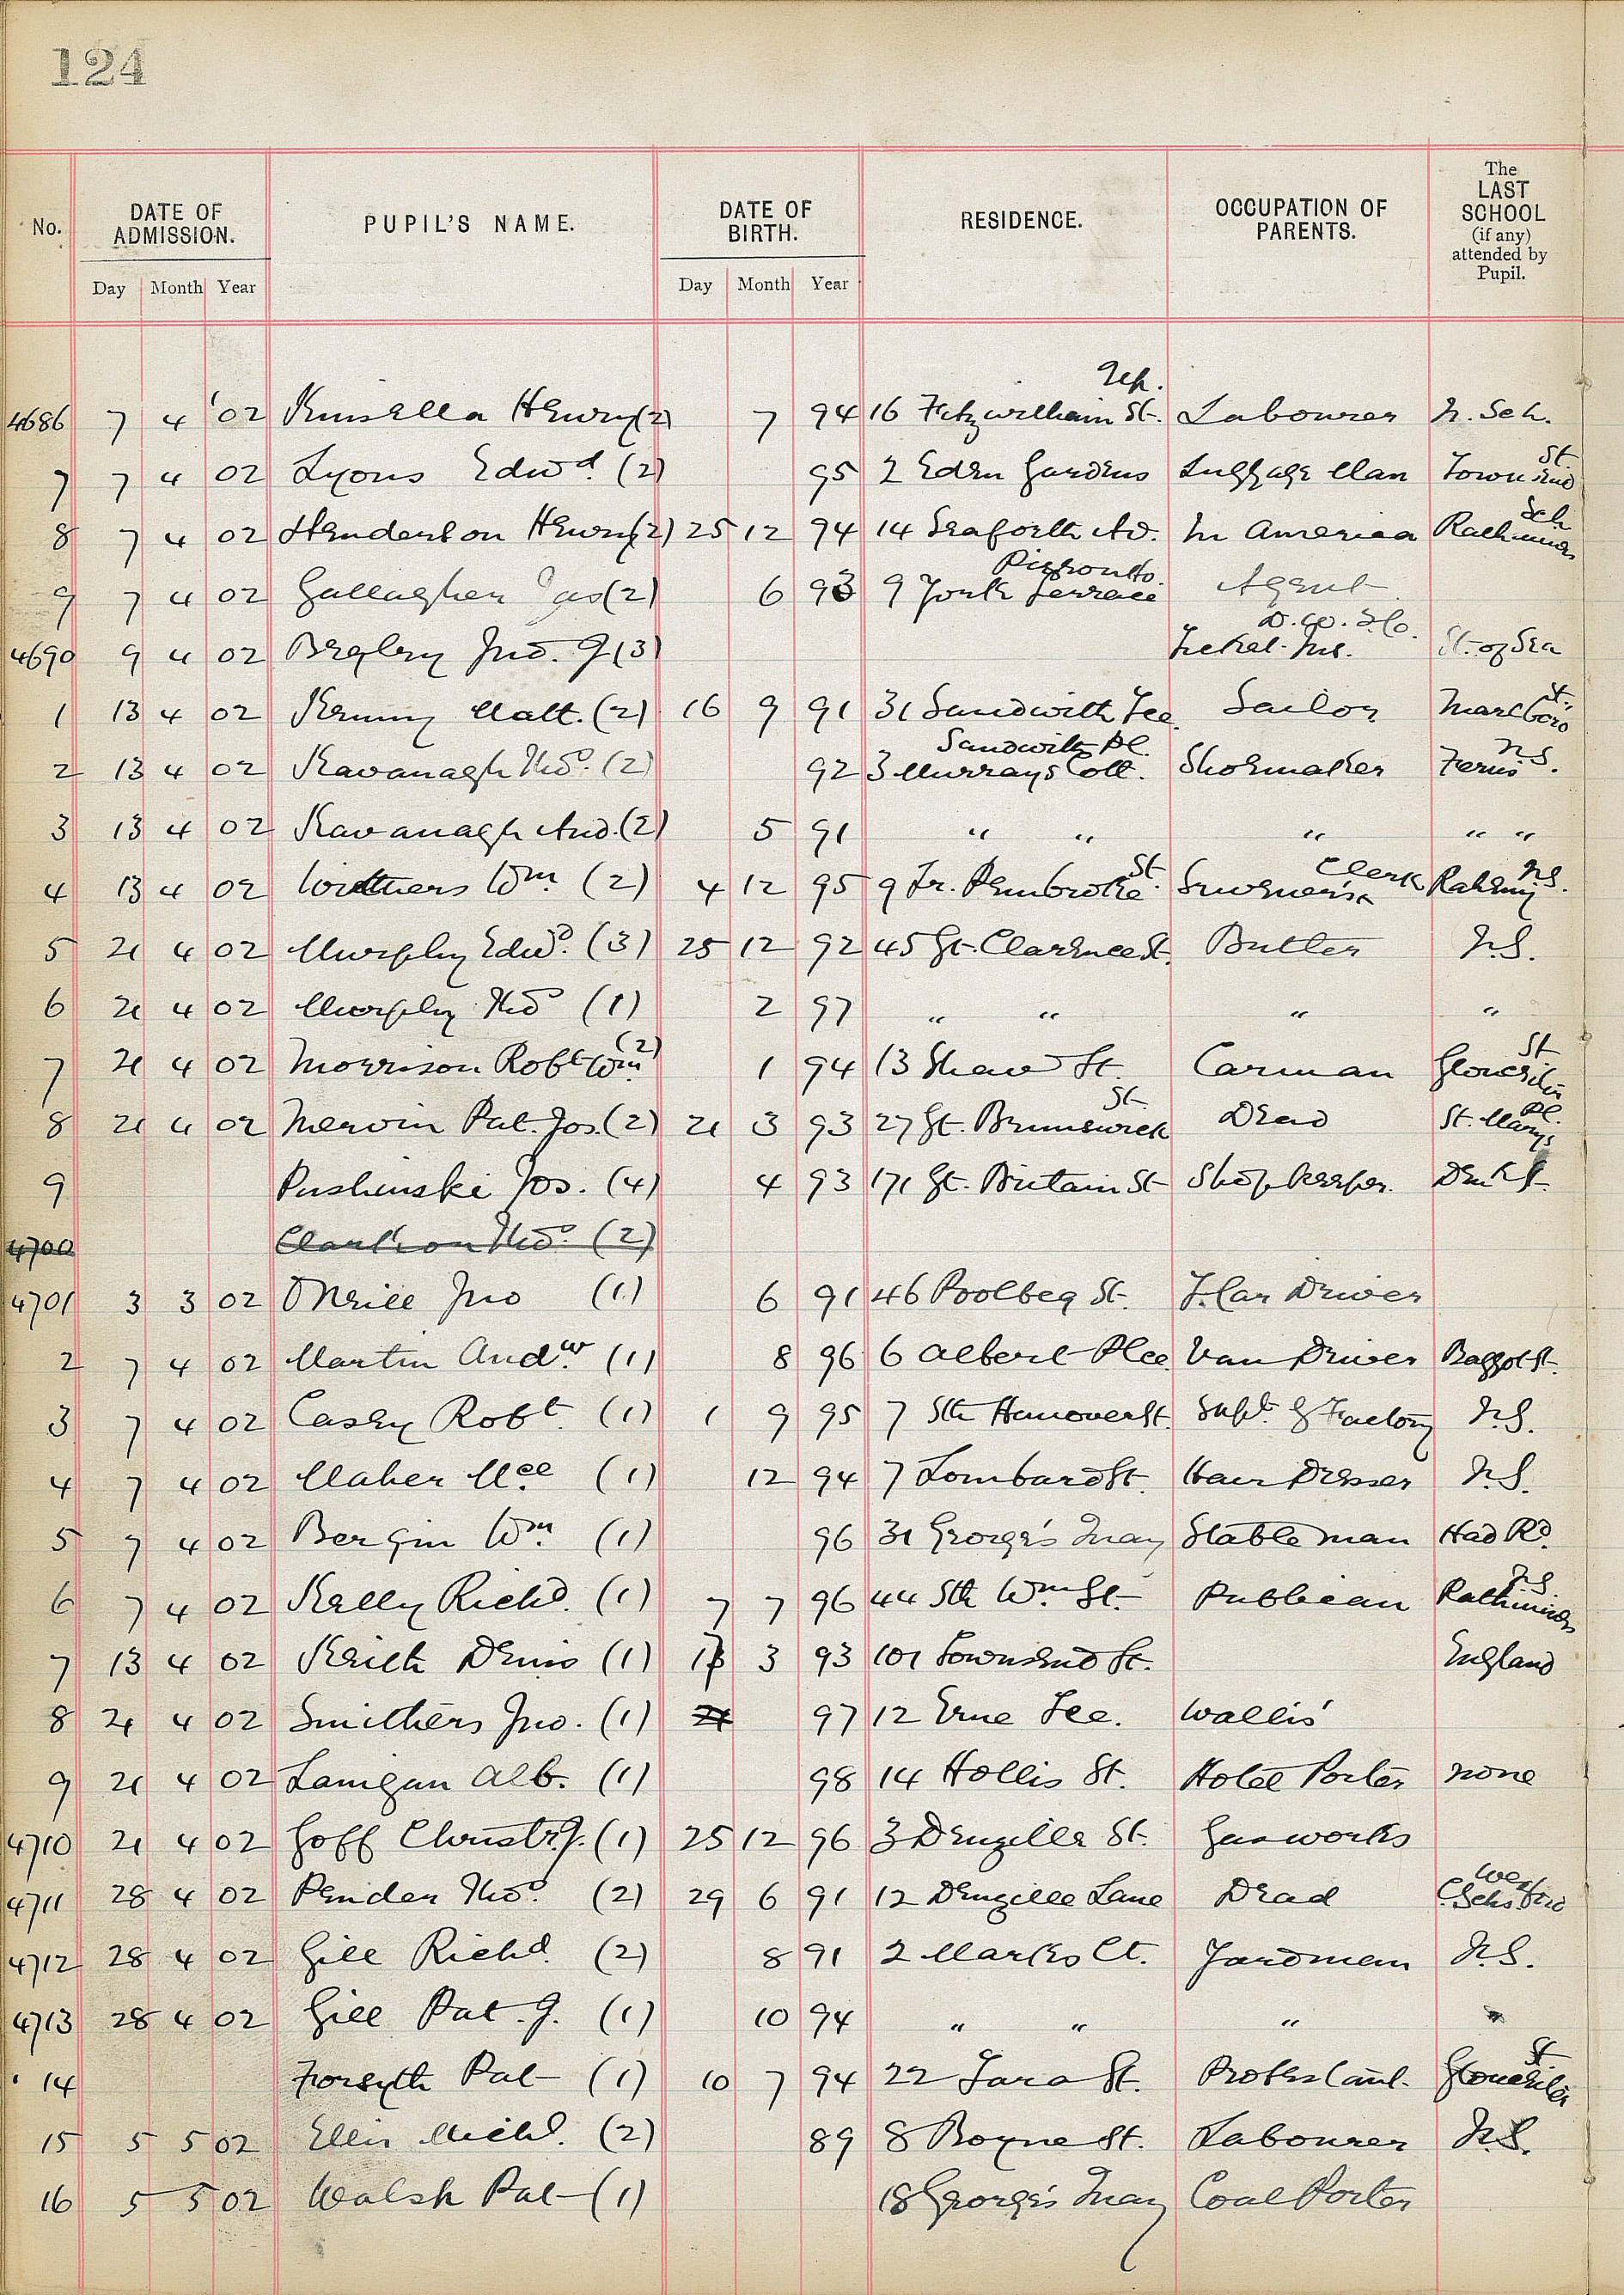 124
No. DATE OF ADMISSION. PUPIL'S NAME. DATE OF BIRTH. RESIDENCE. OCCUPATION OF PARENTS. The LAST SCHOOL (if any) attended by Pupil.
Day Month Year Day Month Year
Up.
4686 7 4 '02 Kinsella Henry (2) 7 94 16 Fitzwilliam St. Labourer N. Sch.
7 7 4 02 Lyons Edwd. (2) 95 2 Eden Gardens Luggage Man Townsend St
8 7 4 02 Henderson Henry (2) 25 12 94 14 Seaforth Av. In America Rathmines Sch
Pigeon Ho.
9 7 4 02 Gallagher Jas (2) 6 93 9 York Terrace Agent
D.W.& Co.
4690 9 4 02 Begley Jno. J (3) Ticket-Ins. St. of Sea
1 13 4 02 Kenny Matt. (2) 16 9 91 31 Sandwith Tce. Sailor Marlboro St.
Sandwith Pl.
2 13 4 02 Kavanagh Thos. (2) 92 3 Murrays Cott. Shoemaker Ferns N.S.
3 13 4 02 Kavanagh And. (2) 5 91 " " " " "
4 13 4 02 Withers Wm. (2) 4 12 95 9 Lr. Pembroke St. Clerk Raheny NS.
5 21 4 02 Murphy Edwd. (3) 25 12 92 45 Gt. Clarence St. Butler N.S.
6 21 4 02 Murphy Thos (1) 2 97 " " " "
7 21 4 02 Morrison Robt Wm (2) 1 94 13 Shaw St. Carman Gloucester St
8 21 4 02 Nervin Pat. Jos. (2) 21 3 93 27 Gt. Brunswick St. Dead St. Marys Pl.
9 Pushinski Jos. (4) 4 93 171 Gt. Britain St Shopkeeper. Den k St.
4700 Clarkson Thos. (2)
4701 3 3 02 O'Neill Jno (1) 6 91 46 Poolbeg St. T. Car Driver
2 7 4 02 Martin Andw. (1) 8 96 6 Albert Plce. Van Driver Baggot St.
3 7 4 02 Casey Robt. (1) 1 9 95 7 Sth Hanover St. Supt. of Factory N.S.
4 7 4 02 Maher Mce (1) 12 94 7 Lombard St. Hair Dresser N.S.
5 7 4 02 Bergin Wm. (1) 96 31 George's Quay Stable man Had Rd.
6 7 4 02 Kelly Richd. (1) 7 7 96 44 Sth Wm St. Publican Rathmines NS.
7 13 4 02 Keith Denis (1) 13 3 93 101 Townsend St. England
8 21 4 02 Smithers Jno. (1) 21 97 12 Erne Tce. Wallis'
9 21 4 02 Lanigan Alb. (1) 98 14 Hollis St. Hotel Porter none
4710 21 4 02 Goff Christr. J. (1) 25 12 96 3 Denzille St. Gasworks
4711 28 4 02 Pender Thos. (2) 29 6 91 12 Denzille Lane Dead C. Schs Wexford
4712 28 4 02 Gill Richd. (2) 8 91 2 Marks Ct. Yardman N.S.
4713 28 4 02 Gill Pat. J. (1) 10 94 " " " "
14 Forsyth Pat (1) 10 7 94 22 Tara St. Protestant. Gloucester St
15 5 5 02 Ellis Michl. (2) 89 8 Boyne St. Labourer N.S.
16 5 5 02 Walsh Pat (1) 18 George's Quay Coal Porter